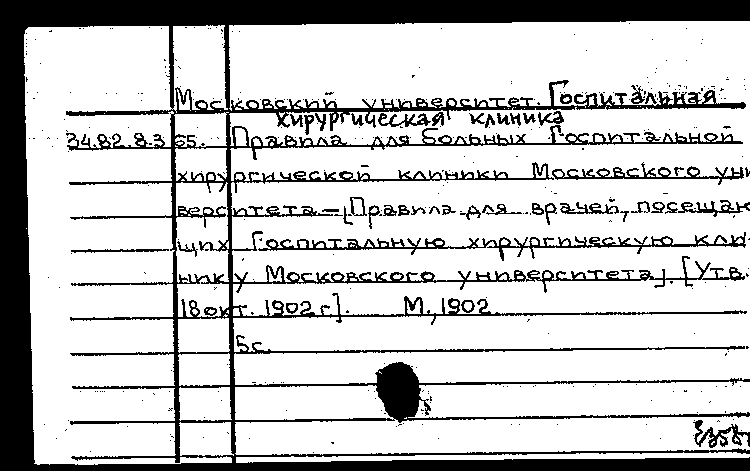 Московский университет. Госпитальная
хирургическая клиника
34.82.8.3 65. Правила для больных Госпитальной
хирургической клиники Московского уни
верситета - [Правила для врачей, посещаю
щих Госпитальную хирургическую кли-
нику Московского университета]. [Утв.
18 окт. 1902 г]. М., 1902.
5с.